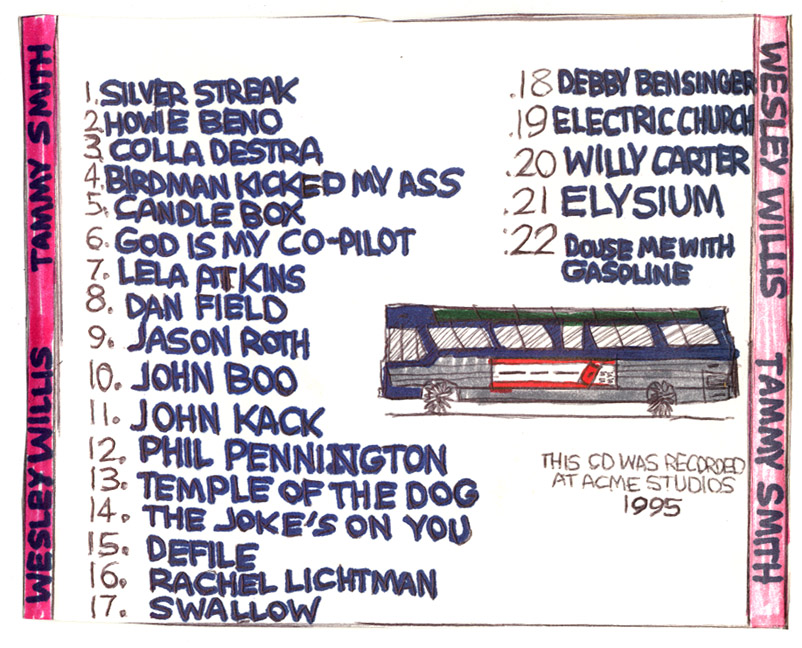 WESLEY WILLIS TAMMY SMITH
1. SILVER STREAK
2. HOWIE BENO
3. COLLA DESTRA
4. BIRDMAN KICKED MY ASS
5. CANDLE BOX
6. GOD IS MY CO-PILOT
7. LELA ATKINS
8. DAN FIELD
9. JASON ROTH
10. JOHN BOO
11. JOHN KACK
12. PHIL PENNINGTON
13. TEMPLE OF THE DOG
14. THE JOKE'S ON YOU
15. DEFILE
16. RACHEL LICHTMAN
17. SWALLOW
.18 DEBBY BENSINGER
.19 ELECTRIC CHURCH
.20 WILLY CARTER
.21 ELYSIUM
.22 DOUSE ME WITH
GASOLINE
THIS CD WAS RECORDED
AT ACME STUDIOS
1995
WESLEY WILLIS TAMMY SMITH